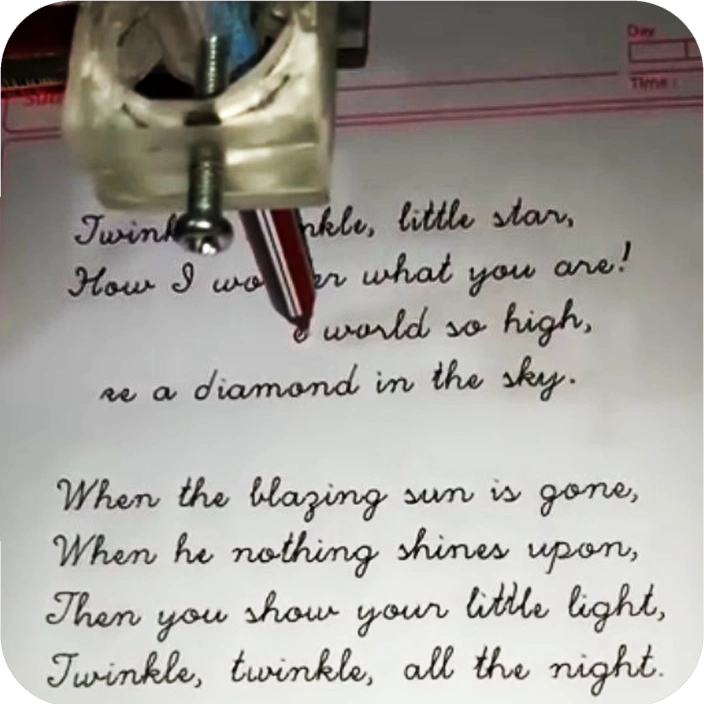 Day
Time :
little star,
How I what you are!
world so high,
a diamond in the sky.
When the blazing sun is gone,
When he nothing shines upon,
Then you show your little light,
Twinkle, twinkle, all the night.